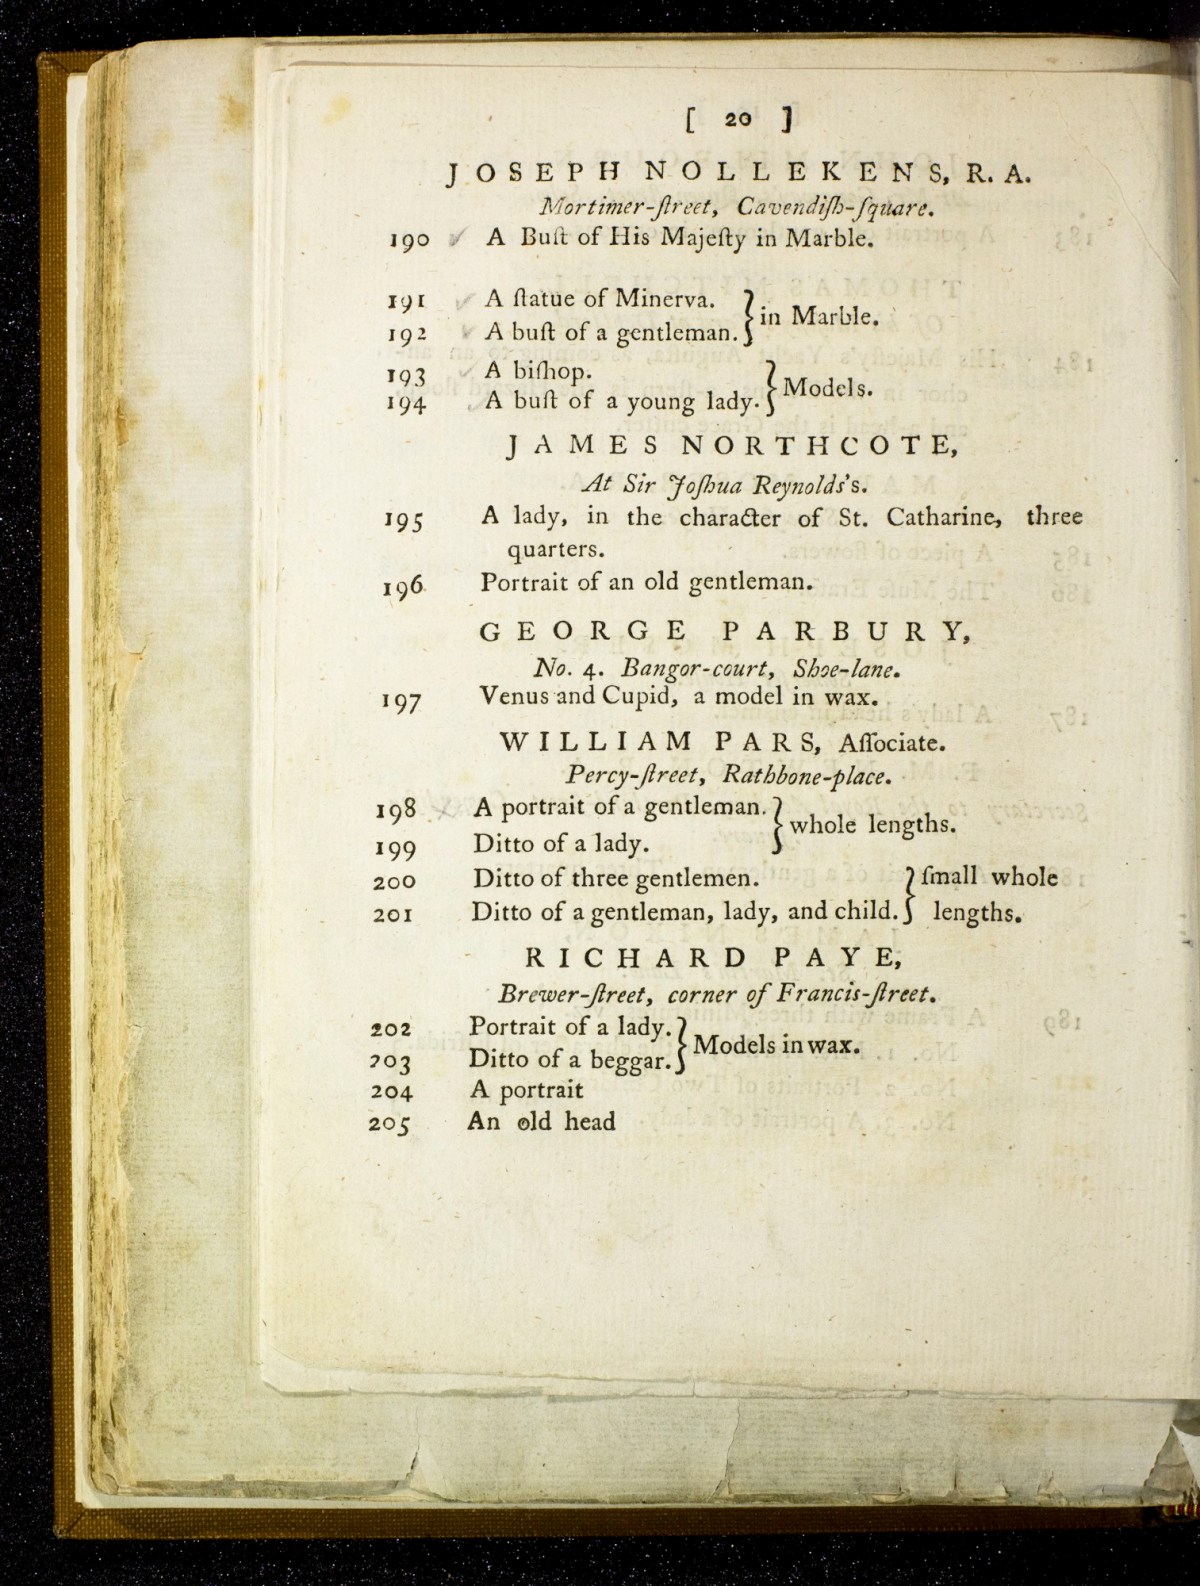 [ 20 ]
JOSEPH NOLLEKENS, R. A.
Mortimer-ſtreet, Cavendiſh-ſquare.
190 A Buſt of His Majeſty in Marble.
191 A ſtatue of Minerva.
192 A buſt of a gentleman. } in Marble.
193 A biſhop.
194 A buſt of a young lady. } Models.
JAMES NORTHCOTE,
At Sir Joſhua Reynolds's.
195 A lady, in the character of St. Catharine, three
quarters.
196 Portrait of an old gentleman.
GEORGE PARBURY,
No. 4. Bangor-court, Shoe-lane.
197 Venus and Cupid, a model in wax.
WILLIAM PARS, Aſſociate.
Percy-ſtreet, Rathbone-place.
198 A portrait of a gentleman.
199 Ditto of a lady. } whole lengths.
200 Ditto of three gentlemen. } ſmall whole
201 Ditto of a gentleman, lady, and child. } lengths.
RICHARD PAYE,
Brewer-ſtreet, corner of Francis-ſtreet.
202 Portrait of a lady.
203 Ditto of a beggar. } Models in wax.
204 A portrait
205 An old head